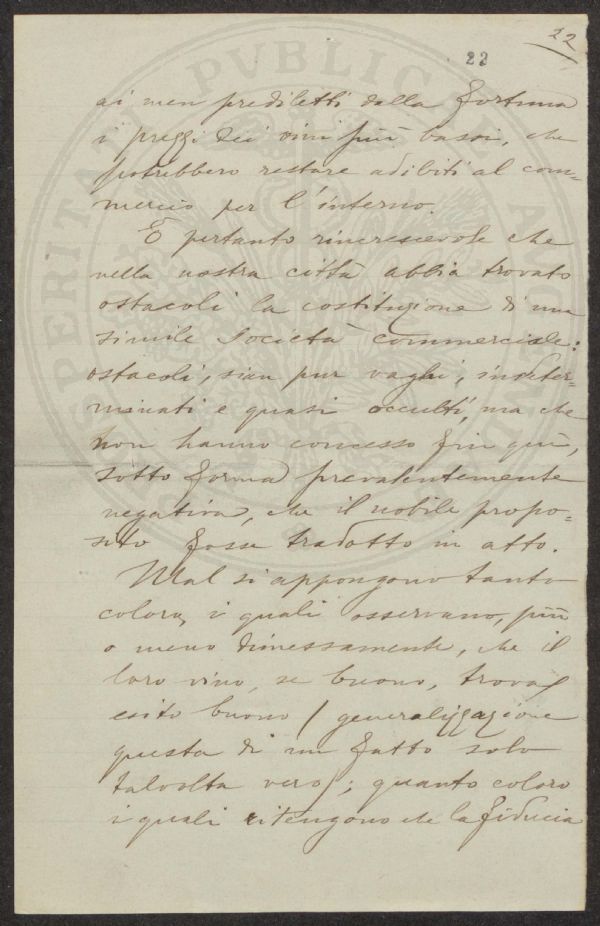 22
22
ai men prediletti dalla fortuna
i prezzi dei vini più bassi, che
potrebbero restare adibiti al com=
mercio per l'interno.
È pertanto rincrescevole che
nella nostra città abbia trovato
ostacoli la costituzione di una
simile Società commerciale:
ostacoli, sian pur vaghi, indeter=
minati e quasi occulti, ma che
non hanno concesso fin qui,
sotto forma prevalentemente
negativa, che il nobile propo=
sito fosse tradotto in atto.
Mal si appongono tanto
coloro, i quali osservano, più
o meno dimessamente, che il
loro vino, se buono, trova
esito buono (generalizzazione
questa di un fatto solo
talvolta vero); quanto coloro
i quali ritengono che la fiducia